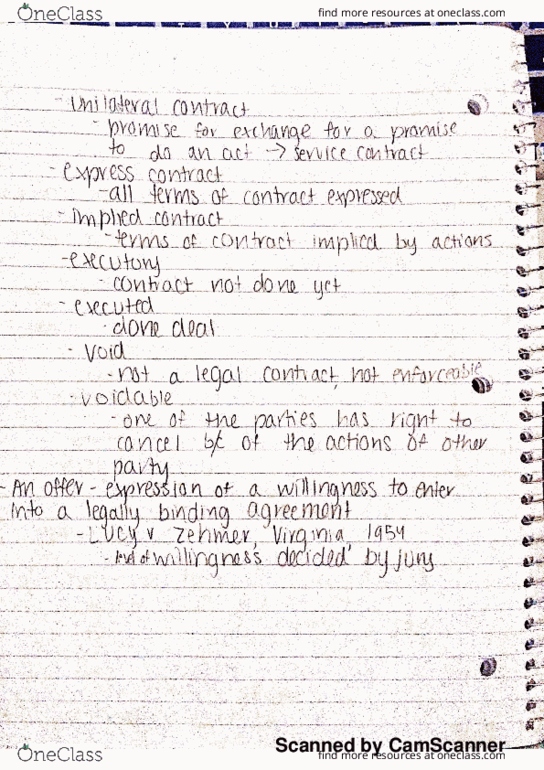 OneClass
find more resources at oneclass.com
- Unilateral contract
- promise for exchange for a promise
to do an act -> service contract
- express contract
- all terms of contract expressed
- implied contract
- terms of contract implied by actions
- executory
- contract not done yet
- executed
- done deal
- void
- not a legal contract, not enforceable
- voidable
- one of the parties has right to
cancel b/c of the actions of other
party
- An offer - expression of a willingness to enter
into a legally binding agreement
- Lucy v Zehmer, Virginia, 1954
- level of willingness decided by jury
Scanned by CamScanner
OneClass
find more resources at oneclass.com